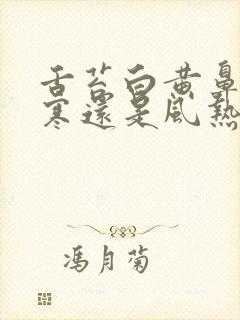 舌苔白黄鼻
寒還是風熱
馮月菊